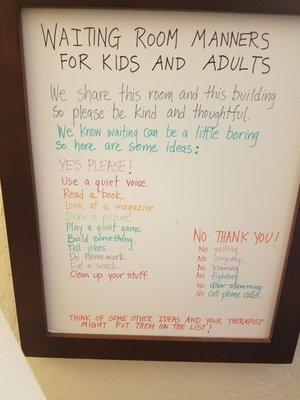 WAITING ROOM MANNERS
FOR KIDS AND ADULTS
We share this room and this building
so please be kind and thoughtful.
We know waiting can be a little boring
so here are some ideas:
YES PLEASE!
Use a quiet voice.
Read a book.
Look at a magazine.
Draw a picture.
Play a quiet game.
Build something.
Tell jokes.
Do homework.
Eat a snack.
Clean up your stuff.
NO THANK YOU!
No yelling.
No jumping.
No running.
No fighting.
No door slamming.
NO Cell phone calls.
THINK OF SOME OTHER IDEAS AND YOUR THERAPIST
MIGHT PUT THEM ON THE LIST!